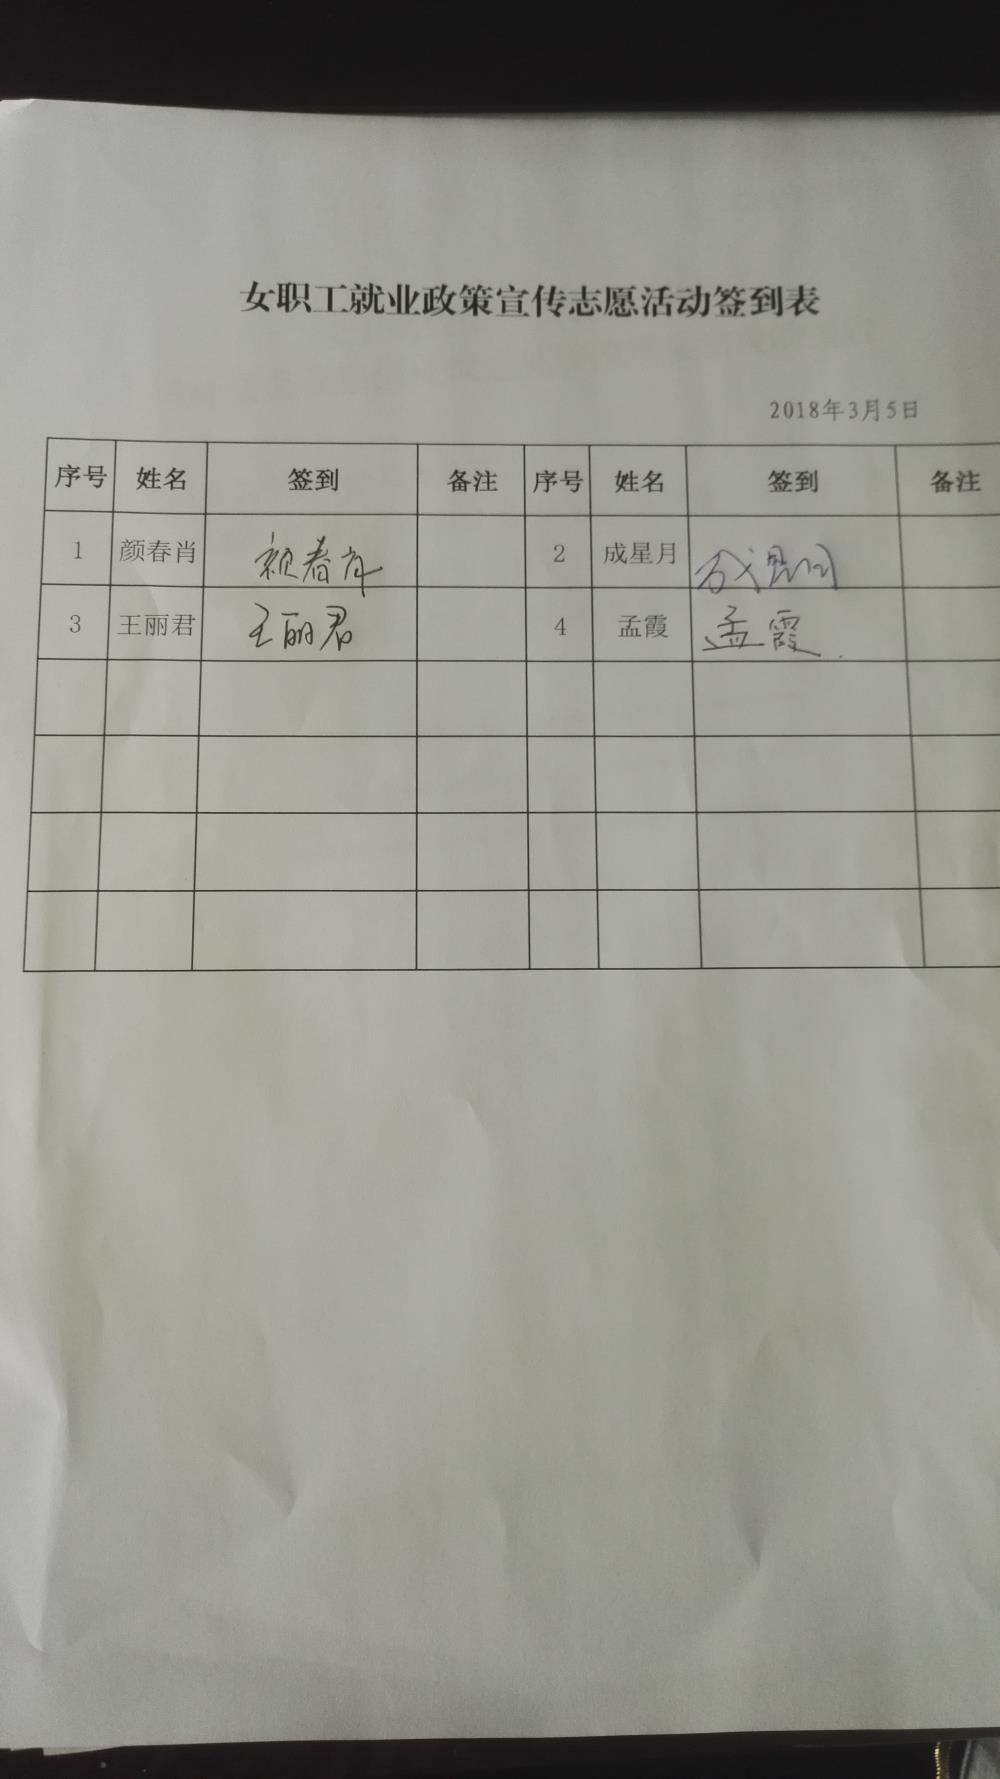 女职工就业政策宣传志愿活动签到表
2018年3月5日
序号 姓名 签到 备注 序号 姓名 签到 备注
1 颜春肖 颜春肖 2 成星月 成星月
3 王丽君 王丽君 4 孟霞 孟霞